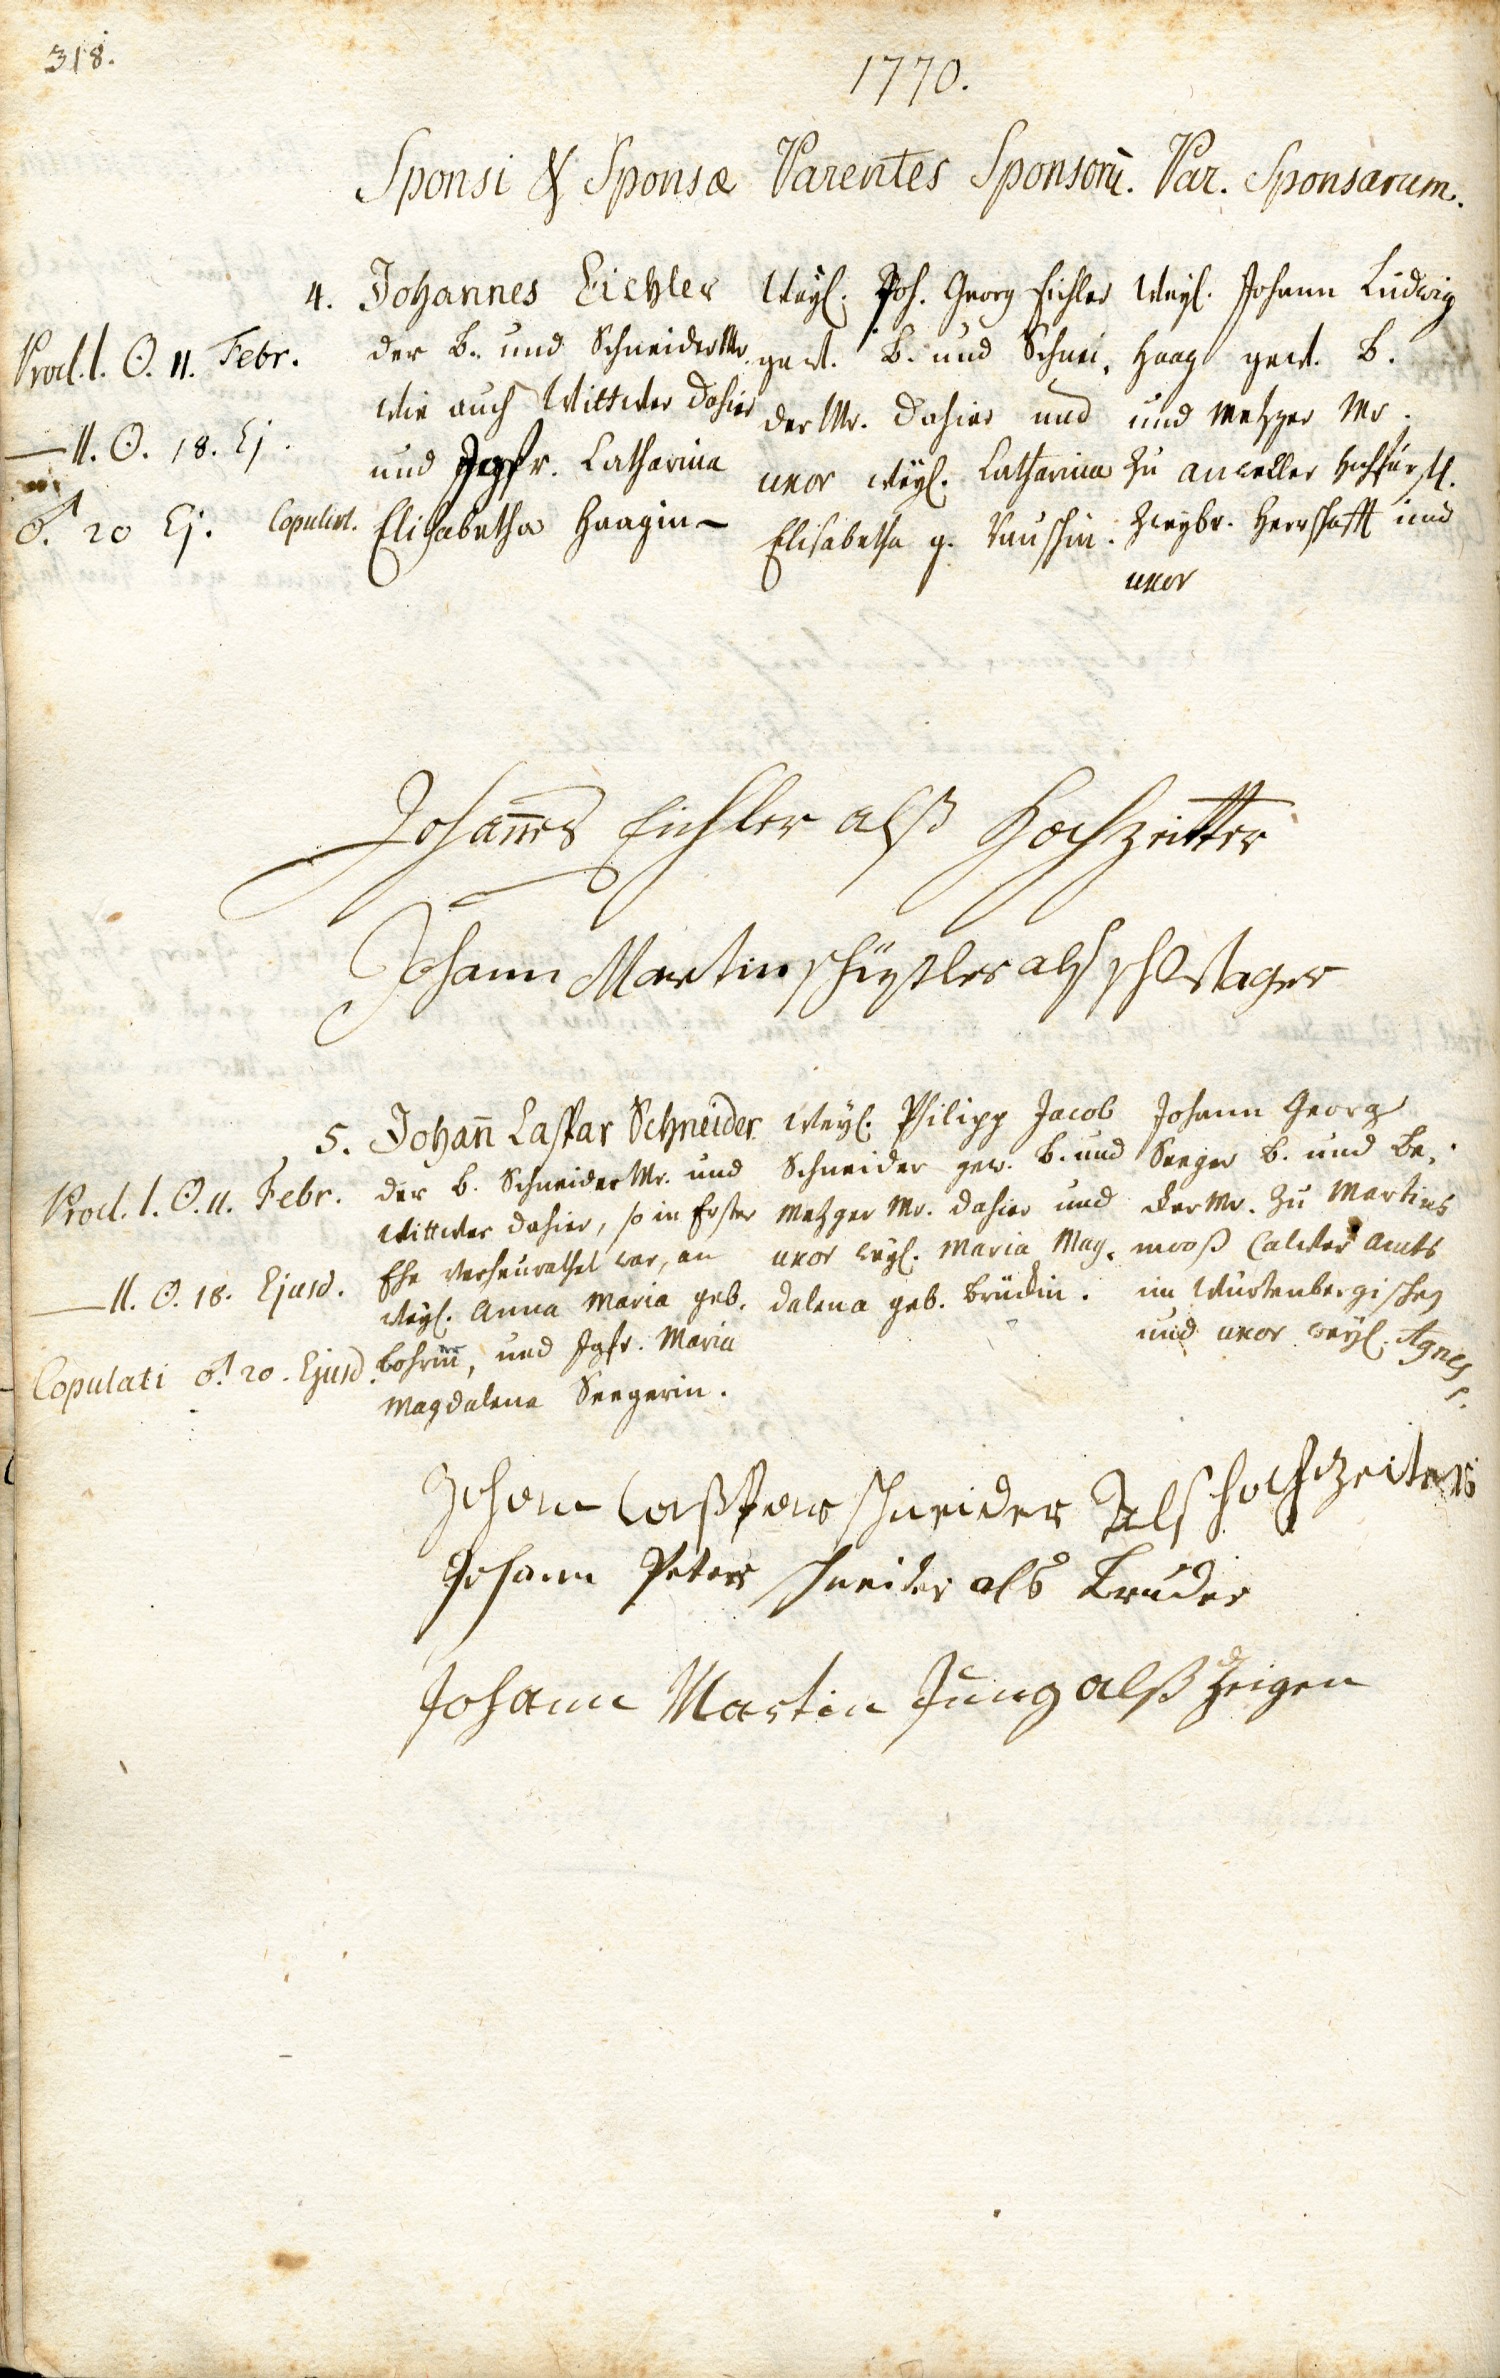 318.
1770.
Sponsi & Sponsæ Parentes Sponsorū. Par. Sponsarum.
Procl. I. ☉. 11. Febr.
— II. ☉. 18. Ej.
♂. 20 Ej. Copulirt.
4. Johannes Eichler
der B. und Schneider Mr.
wie auch Wittwer dahier
und Jgfr. Catharina
Elisabetha Haagin —
Weyl. Joh. Georg Eichler
gewt. B. und Schnei,
der Mr. dahier und
uxor weyl. Catharina
Elisabetha g.
Weyl. Johann Ludwig
Haag gewt. B.
und Metzger Mr.
zu Anweller Hochfürstl.
Zweybr. Herrschafft und
uxor
Johannes Eichler alß Hochzeitter
Johann Martin als schwager
Procl. I. ☉. 11. Febr.
— II. ☉. 18. Ejusd.
Copulati ♂. 20. Ejusd.
5. Johann̄ Caspar Schneider
der B. Schneider Mr. und
Wittwer dahier, so in Erster
Ehe verheurathet war, an
weyl. Anna Maria geb.
und Jgfr. Maria
Magdalena Seegerin.
Weyl. Philipp Jacob
Schneider gew. B. und
Metzger Mr. dahier und
uxor weyl. Maria Mag,
dalena geb. Brückin.
Johann Georg
Seeger B. und Be,
cker Mr. zu Martins
mooß Calwer Amts
im Würtenbergischen
und uxor weyl. Agnes
Johann Casspar schneider Als hochzeiter
Johann Peter schneider als Bruder
Johann Martin Jung alß Zeigen